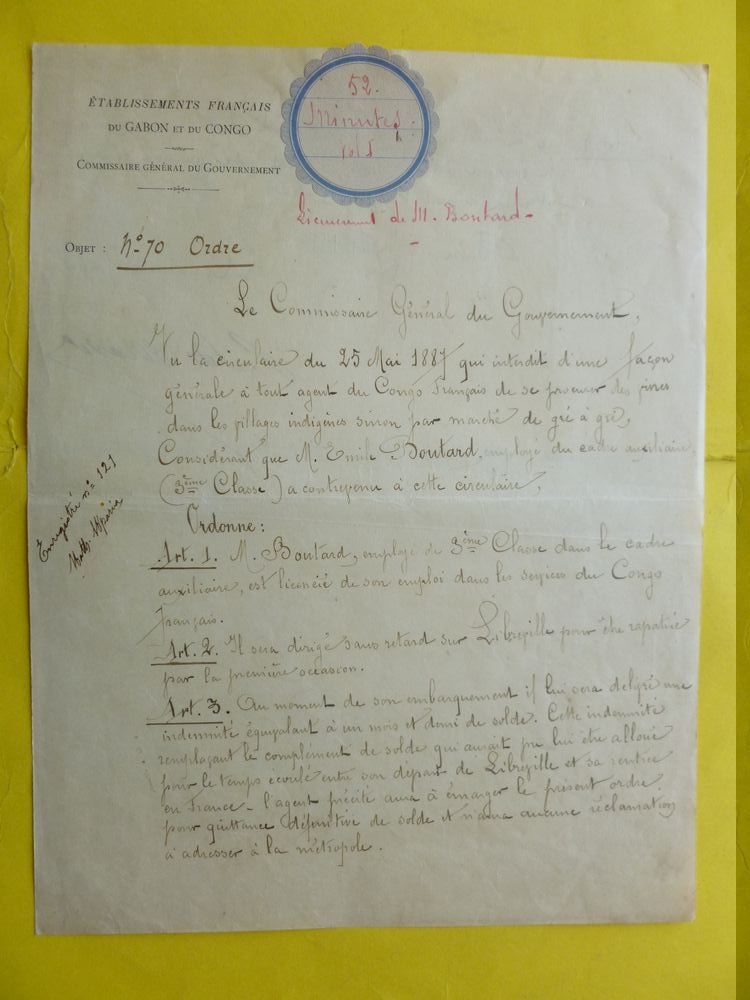 ÉTABLISSEMENTS FRANÇAIS
DU GABON ET DU CONGO
COMMISSAIRE GÉNÉRAL DU GOUVERNEMENT
52.
Minutes.
Vol 1
Licenciement de M. Boutard -
OBJET : No 70 Ordre
Le Commissaire Général du Gouvernement,
Vu la circulaire du 25 Mai 1887 qui interdit d'une façon
générale à tout agent du Congo Français de se procurer des vivres
dans les villages indigènes sinon par marché de gré à gré,
Considérant que M. Emile Boutard, employé du cadre auxiliaire,
(3ème Classe) a contrevenu à cette circulaire,
Ordonne :
Art. 1. M. Boutard, employé de 3ème Classe dans le cadre
auxiliaire, est licencié de son emploi dans les services du Congo
français.
Art. 2. Il sera dirigé sans retard sur Libreville pour être rapatrié
par la première occasion.
Art. 3. Au moment de son embarquement il lui sera délivré une
indemnité équivalant à un mois et demi de solde. Cette indemnité
remplaçant le complément de solde qui aurait pu lui être alloué
pour le temps écoulé entre son départ de Libreville et sa rentrée
en France - l'agent précité aura à émarger le présent ordre
pour quittance définitive de solde et n'aura aucune réclamation
à adresser à la métropole.
Enregistré no 121